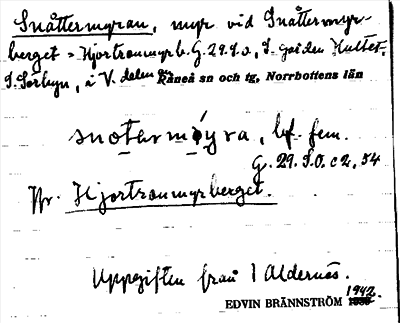 Snåttermyran, myr vid Snåttermyr-
berget = Hjortronmyrb. G. 29. S. o, S. gården Hultet.
S. Sörbyn, å V. delen Råneå sn och tg, Norrbottens län
snotermýra, bf. fem.
G. 29. S. O. c 2, 54
Jfr. Hjortronmyrberget.
Uppgiften från I Aldernäs.
1942.
EDVIN BRÄNNSTRÖM